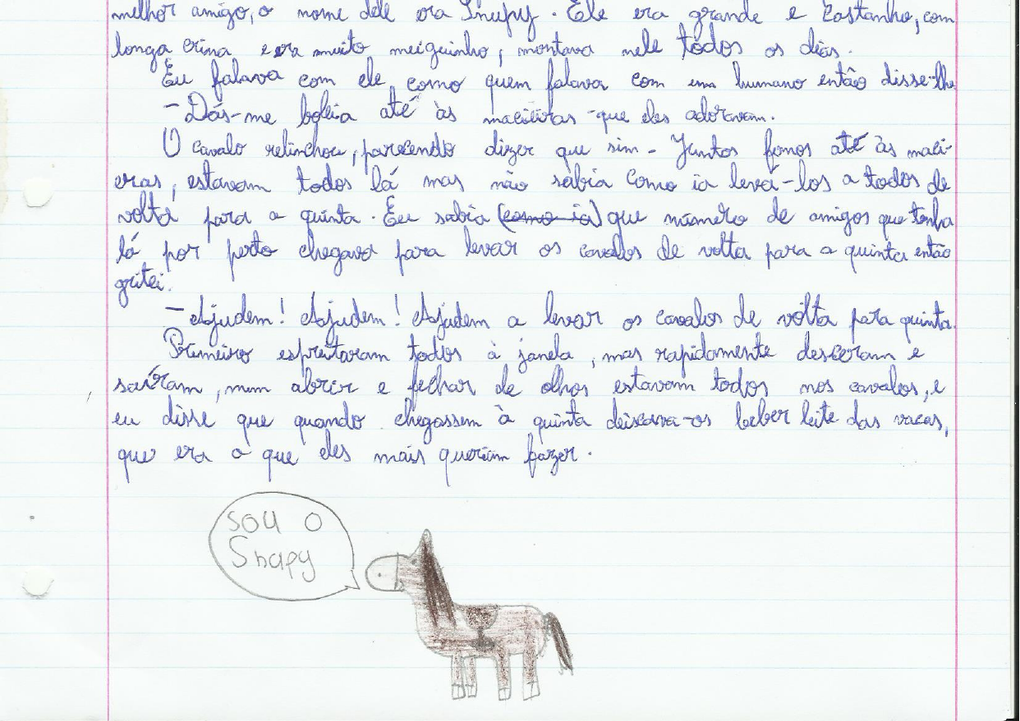 melhor amigo, o nome dele era Snupy. Ele era grande e castanho, com
longa crina e era muito meiguinho, montava nele todos os dias.
Eu falava com ele como quem falava com um humano então disse-lhe
- Dás-me boleia até às macieiras - que eles adoravam.
O cavalo relinchou, parecendo dizer que sim - Juntos fomos até às maci-
eras, estavam todos lá mas não sabia como ia levá-los a todos de
volta para a quinta. Eu sabia (como ia) que número de amigos que tinha
lá por perto chegava para levar os cavalos de volta para a quinta então
gritei.
- Ajudem! Ajudem! Ajudem a levar os cavalos de volta para quinta.
Primeiro espreitaram todos à janela, mas rapidamente desceram e
saíram, num abrir e fechar de olhos estavam todos nos cavalos, e
eu disse que quando chegassem à quinta deixava-os beber leite das vacas,
que era o que eles mais queriam fazer.
SOU O
Snapy